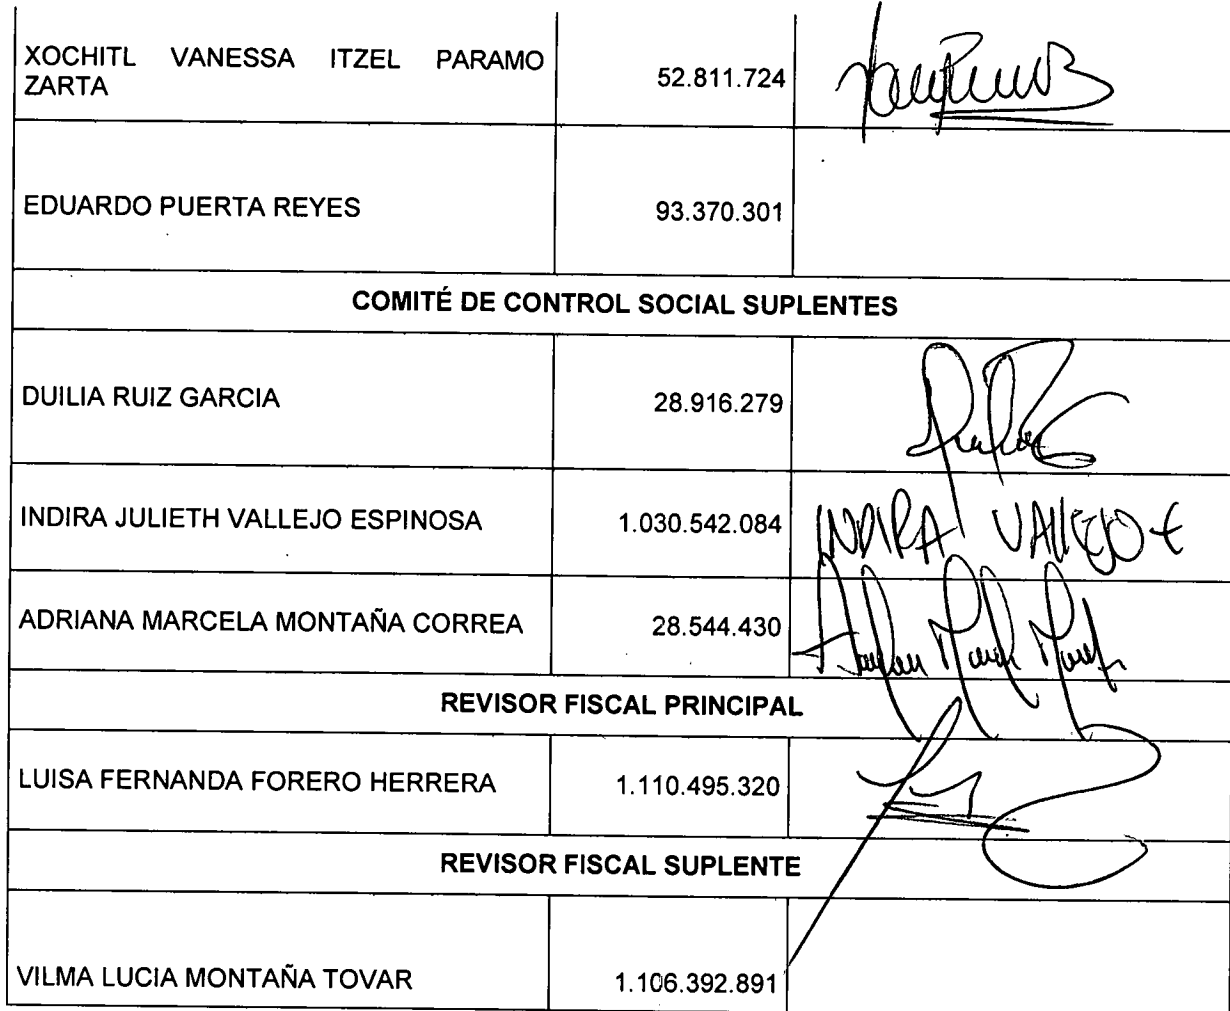 XOCHITL VANESSA ITZEL PARAMO
ZARTA
52.811.724
EDUARDO PUERTA REYES
93.370.301
COMITÉ DE CONTROL SOCIAL SUPLENTES
DUILIA RUIZ GARCIA
28.916.279
INDIRA JULIETH VALLEJO ESPINOSA
1.030.542.084
INDIRA VALLEJO E
ADRIANA MARCELA MONTAÑA CORREA
28.544.430
REVISOR FISCAL PRINCIPAL
LUISA FERNANDA FORERO HERRERA
1.110.495.320
REVISOR FISCAL SUPLENTE
VILMA LUCIA MONTAÑA TOVAR
1.106.392.891